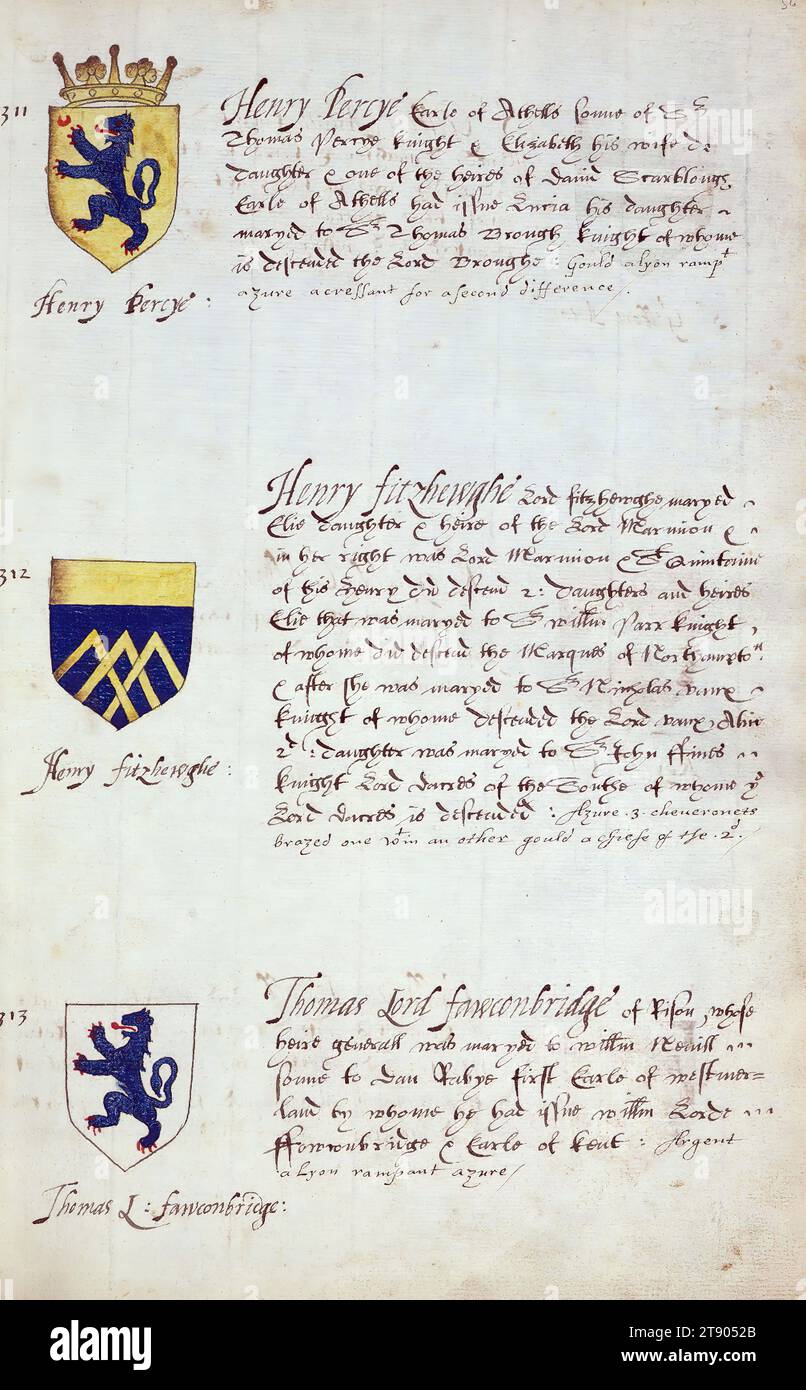 56
311
Henry Percye Earle of Athells sonne of Sr
Thomas Percye knight & Elizabeth his wife
daughter & one of the heires of David Scarblough
Earle of Athells had issue Lucia his daughter
maryed to Sr Thomas Brough knight of whome
is desceaded the Lord Broughe : Gould a lyon rampt
azure a cressant for a second difference /.
Henry Percye :
312
Henry fitzhewghe Lord fitzhewghe maryed
Elie daughter & heire of the Lord Marmion &
in her right was Lord Marmion & St Quintaine
of this Henry did descend 2: daughters and heires
Elie that was maryed to Sr willm Parr knight
of whome did descead the Marques of Northampton
& after she was maryed to Sr Nicholas vaux
knight of whome desceaded the Lord vaux,
2d : daughter was maryed to Sr John ffines
knight Lord dacres of the Southe of whome ye
Lord dacres is desceaded : Azure .3. cheueronets
brazed one wtin an other gould a chiefe of the .2d. /
Henry fitzhewghe :
313
Thomas Lord fawconbridge of Rison, whose
heire generall was maryed to willm Nevill
sonne to dan Rabye first Earle of westmer=
land by whome he had issue willm Lorde
ffowwnbridge & Earle of kent : Argent
a Lyon rampant azure /
Thomas L : fawconbridge :
alamy
alamy
Image ID: 2T9052B
www.alamy.com